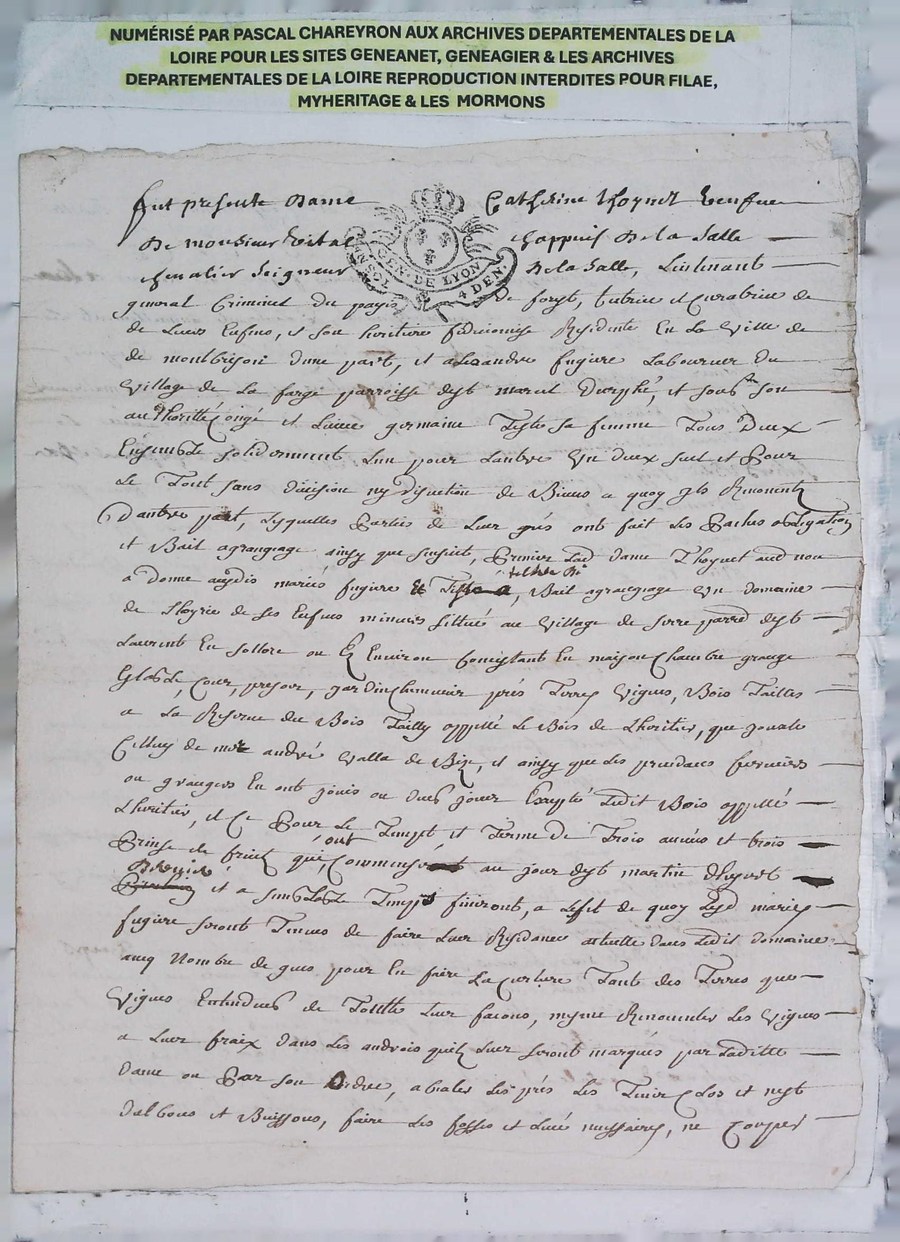 NUMÉRISÉ PAR PASCAL CHAREYRON AUX ARCHIVES DEPARTEMENTALES DE LA
LOIRE POUR LES SITES GENEANET, GENEAGIER & LES ARCHIVES
DEPARTEMENTALES DE LA LOIRE REPRODUCTION INTERDITES POUR FILAE,
MYHERITAGE & LES MORMONS
fut presente Dame Catherine Thoynet veufue
De monsieur Vital chappuis De la Salle
chevalier Seigneur De la Salle, Lieutenant
GEN. DE LYON
4 DEN.
general Criminel du pays de forest, tutrice et curatrice de
de Leurs Enfens, et son heritiere fidicomise Residente En La Ville de
de montbrison d'une part, et alexandre fugiere Laboureur du
Village de La farge parroisse de st marcel Durphé, et sous son
authorittée et Licence germaine sa femme Tous Deux
Ensemble solidairement L'un pour L'autre Un deux seul et Pour
Le Tout sans division ny discution de Biens a quoy jls Renoncent
D'autre part, Lesquelles Parties de Leur grés ont fait Les Pactes obligations
et Bail agrangeage ainsy que s'ensuit, Premier Lad dame Thoynet aud nom
a donné auxdis mariés fugiere et Bail agrangeage Un domaine
de L'hoyrie de ses Enfens mineurs sittué au Village de parred de st
Laurent En sollore ou Es Environ Concistant En maison Chambre grange
Estable, Cour, presoir, jardin Cheneuier prés Terres Vignes, Bois Taillis
a La Reserue du Bois Tailly appellé Le Bois de L'heritier, que jouate
Celluy de mre andré Valla de et ainsy que Les precedans fermiers
ou grangers En ont jouis ou deus jouir Excepté Ledit Bois appellé
L'heritier, et Ce Pour Le Tempt et Terme de Trois années et trois
Prinse de fruict qui ont Commensé au jour de st martin d'hyvert
Dernier et a semblable Tempt finiront, a Lefet de quoy Lesd mariés
fugiere seront Tenues de faire Leur Residance actuelle dans Ledit domaine
aueq Nombre de gens pour En faire La Curture Tant des Terres que
Vignes Entendues de Toutte Leur facons, mesme Renouueler Les Vignes
a Leur fraix dans Les androis quils Leur seront marqués par Laditte
Dame ou Par son Ordre, Les prés Les Tenir Clos et nest
d'albons et Buissons, faire Les fossés et nessaires, ne Couper